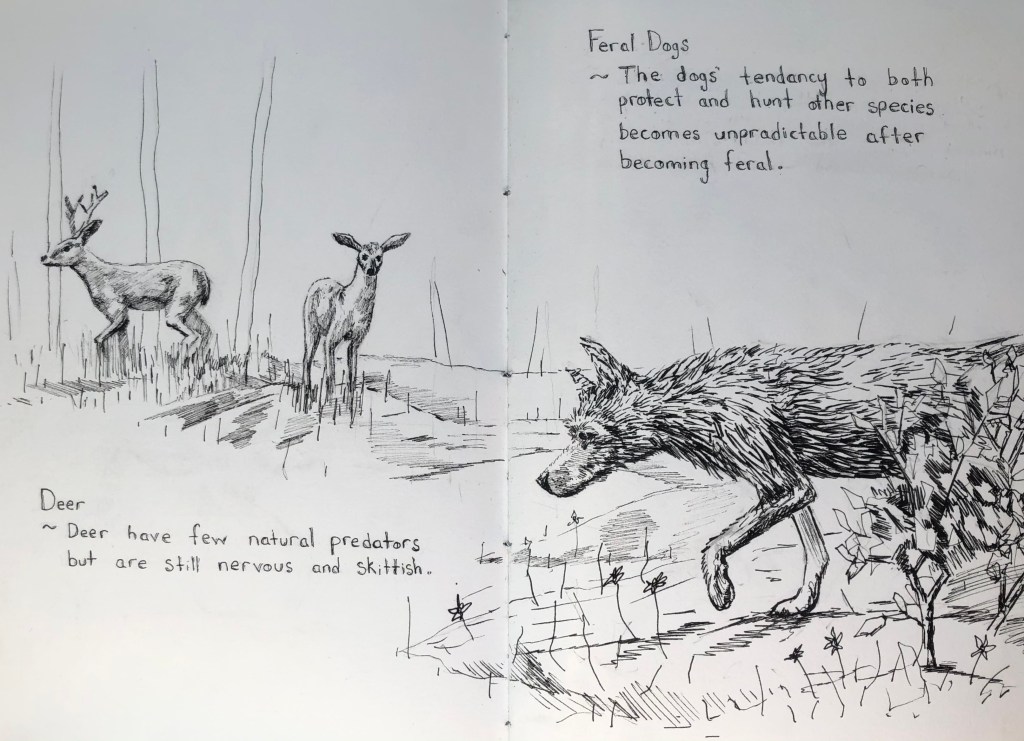 Deer
~ Deer have few natural predators
but are still nervous and skittish..
Feral Dogs
~ The dogs' tendancy to both
protect and hunt other species
becomes unpradictable after
becoming feral.